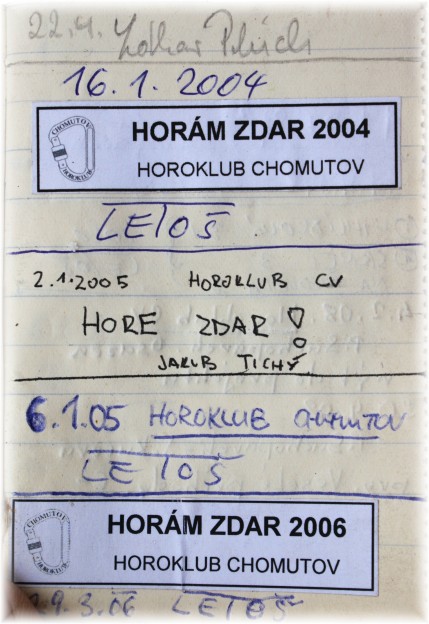 22.4. Lothar Plüch
16.1.2004
CHOMUTOV
HOROKLUB
HORÁM ZDAR 2004
HOROKLUB CHOMUTOV
LETOŠ
2.1.2005 HOROKLUB CV
HORE ZDAR!
JAKUB TICHÝ
6.1.05 HOROKLUB CHOMUTOV
LETOŠ
CHOMUTOV
HOROKLUB
HORÁM ZDAR 2006
HOROKLUB CHOMUTOV
29.3.06 LETOŠ